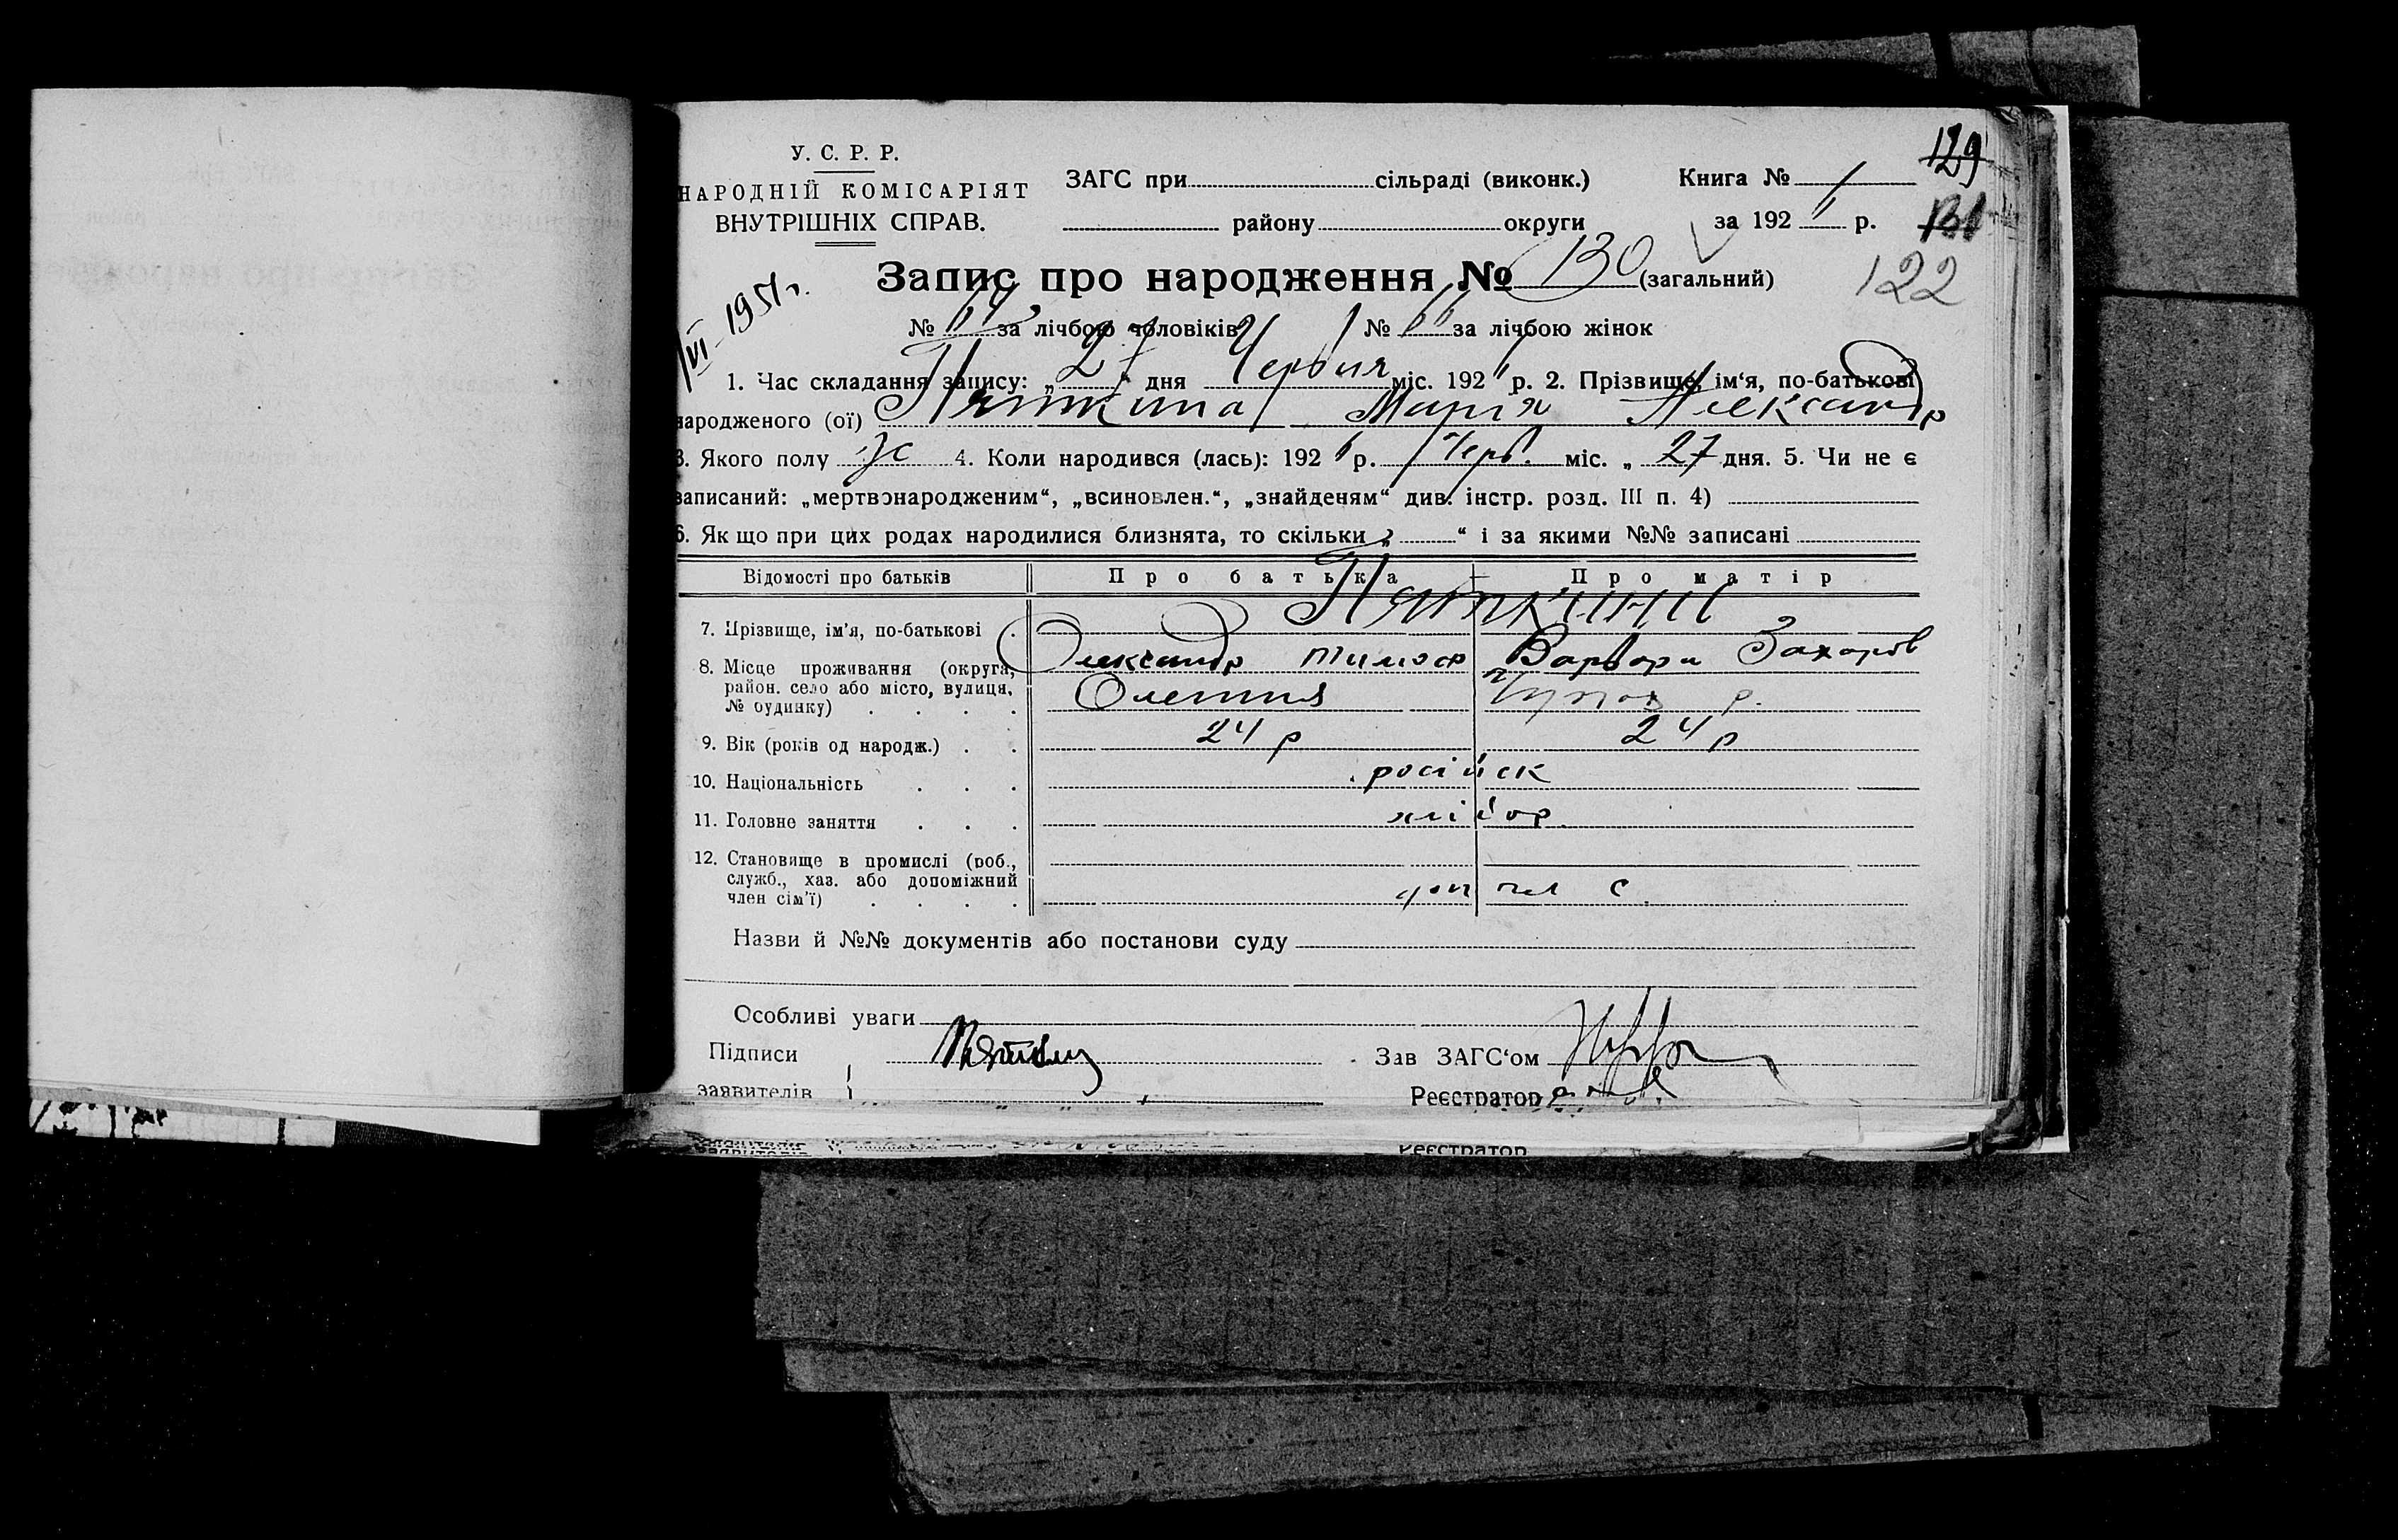 129
У. С. Р. Р.
НАРОДНІЙ КОМІСАРІЯТ
ВНУТРІШНІХ СПРАВ.
ЗАГС при сільраді (виконк.)
району округи
Книга № 1
за 192 р.
122
VI 1951 г.
Запис про народження № 130 (загальний)
№ за лічбою чоловіків № за лічбою жінок
1. Час складання запису: „ 27 " дня Червня міс. 192 р. 2. Прізвище, ім'я, по-батькові
народженого (ої) Пяткина Марія Александр
3. Якого полу ж 4. Коли народився (лась): 192 6 р. Черв. міс. „ 27 дня. 5. Чи не є
записаний: „мертвонародженим", „всиновлен.", „знайденям" див. інстр. розд. III п. 4)
6. Як що при цих родах народилися близнята, то скільки „ " і за якими №№ записані
Відомості про батьків Про батька Про матір
Пяткини
7. Прізвище, ім'я, по-батькові . Олександр Тимоф Варвара Захаров
8. Місце проживання (округа, район. село або місто, вулиця, № будинку) . . . .
9. Вік (років од народж.) . . 24 р 24 р
10. Національність . . . російск
11. Головне заняття . . . хлібор.
12. Становище в промислі (роб., служб., хаз. або допоміжний член сім'ї) . . . . доп чл с
Назви й №№ документів або постанови суду
Особливі уваги
Підписи
заявителів
Зав ЗАГС'ом
Реєстратор
Реєстратор